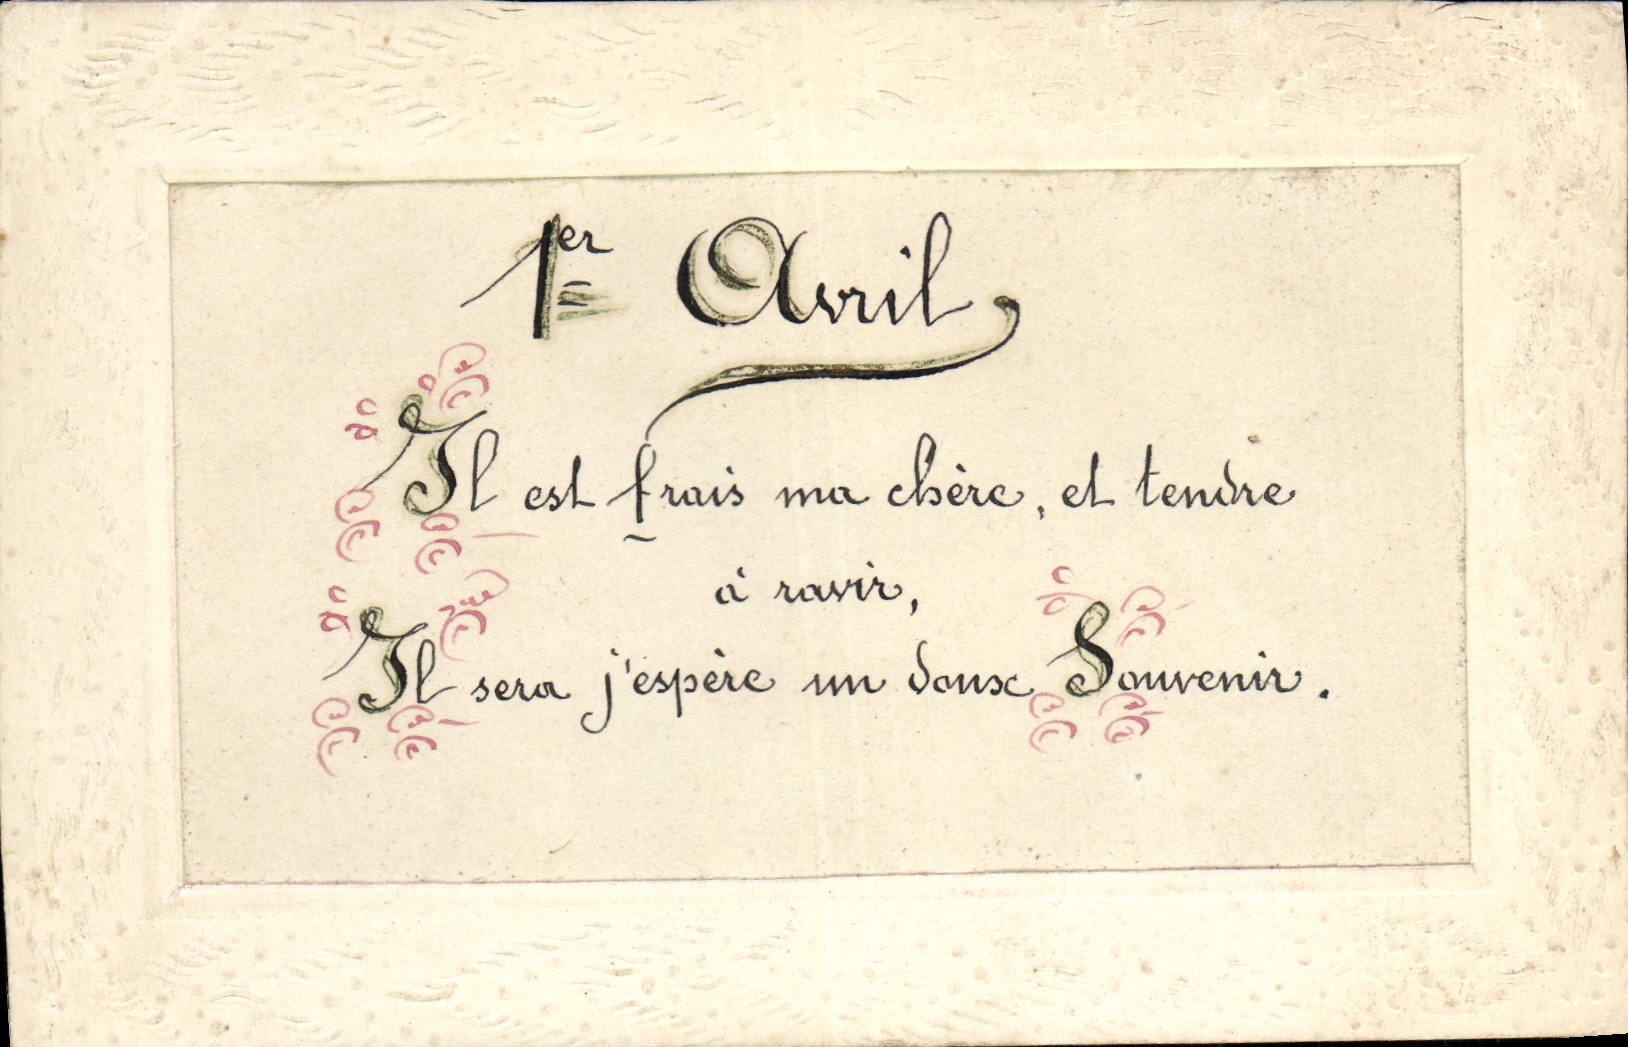 1er Avril
Il est frais ma chère, et tendre
à ravir,
Il sera j'espère un doux Souvenir.